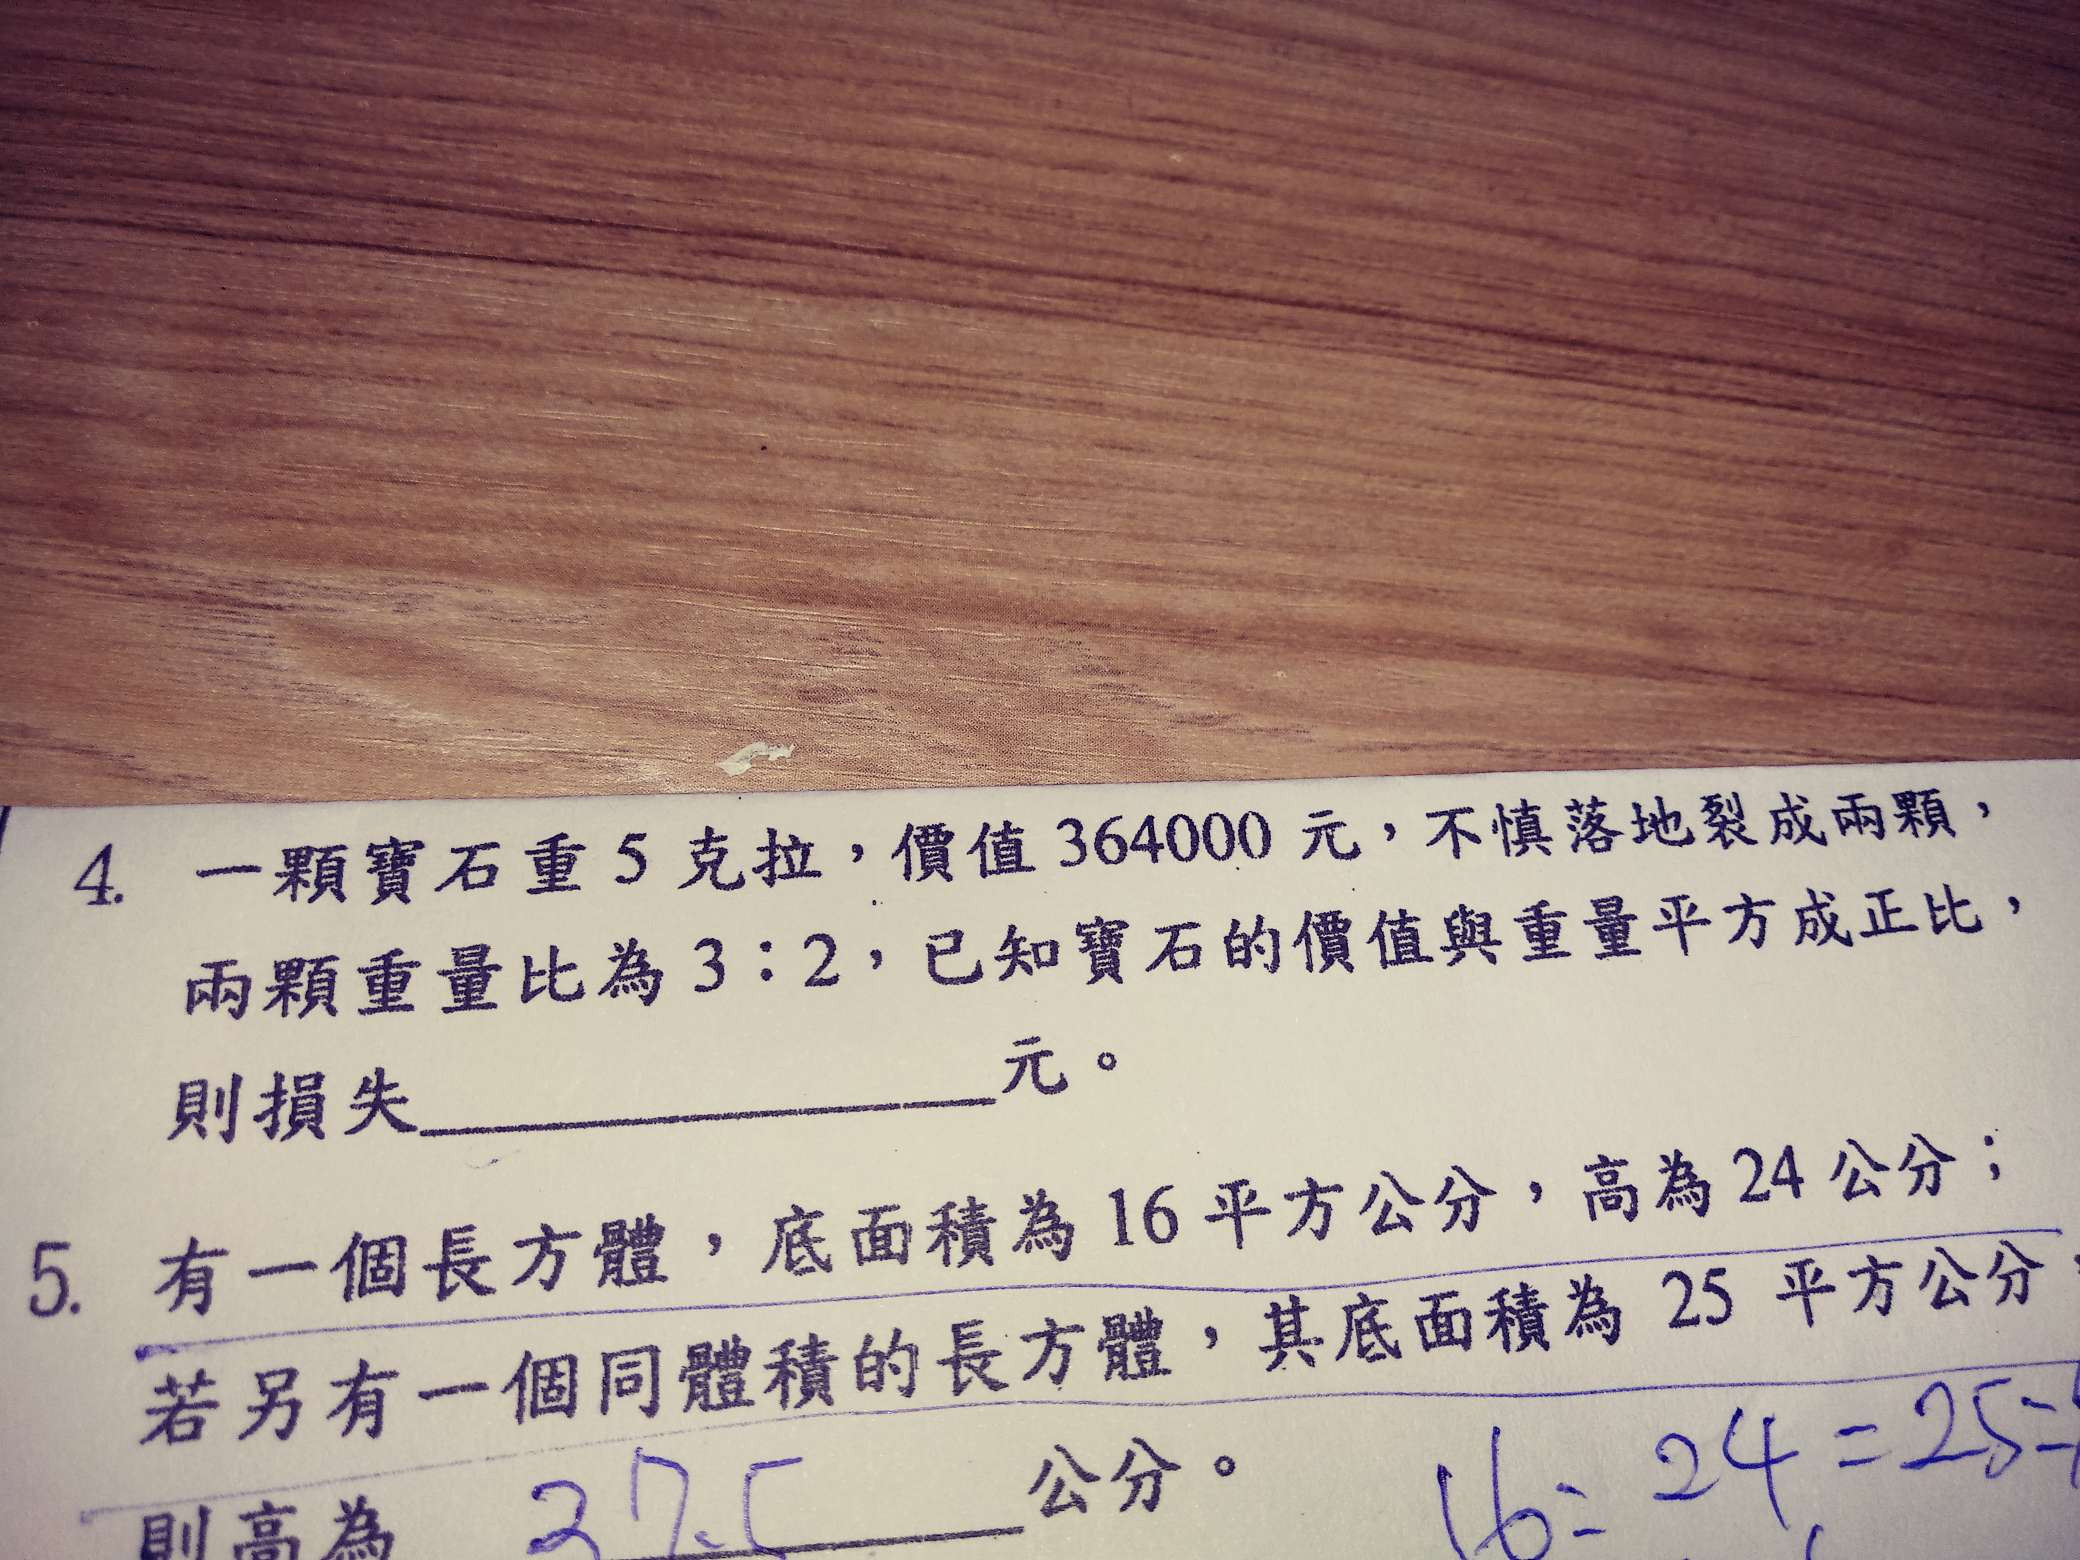 4. 一顆寶石重 5 克拉，價值 364000 元，不慎落地裂成兩顆，
兩顆重量比為 3：2，已知寶石的價值與重量平方成正比，
則損失＿＿＿＿＿＿元。
5. 有一個長方體，底面積為 16 平方公分，高為 24 公分；
若另有一個同體積的長方體，其底面積為 25 平方公分，
則高為 37.5 公分。
16：24＝25：